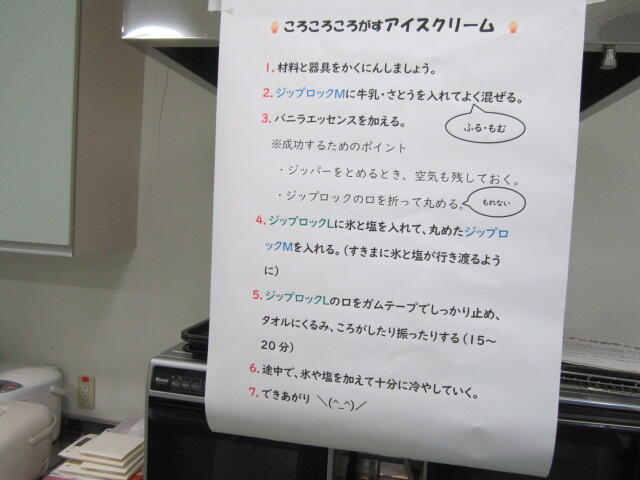 ころころころがすアイスクリーム
1. 材料と器具をかくにんしましょう。
2. ジップロックMに牛乳・さとうを入れてよく混ぜる。
ふる・もむ
3. バニラエッセンスを加える。
※成功するためのポイント
・ジッパーをとめるとき、空気も残しておく。
・ジップロックの口を折って丸める。
もれない
4. ジップロックLに氷と塩を入れて、丸めたジップロ
ックMを入れる。(すきまに氷と塩が行き渡るよう
に)
5. ジップロックLの口をガムテープでしっかり止め、
タオルにくるみ、ころがしたり振ったりする(15～
20分)
6. 途中で、氷や塩を加えて十分に冷やしていく。
7. できあがり ＼(^_^)／